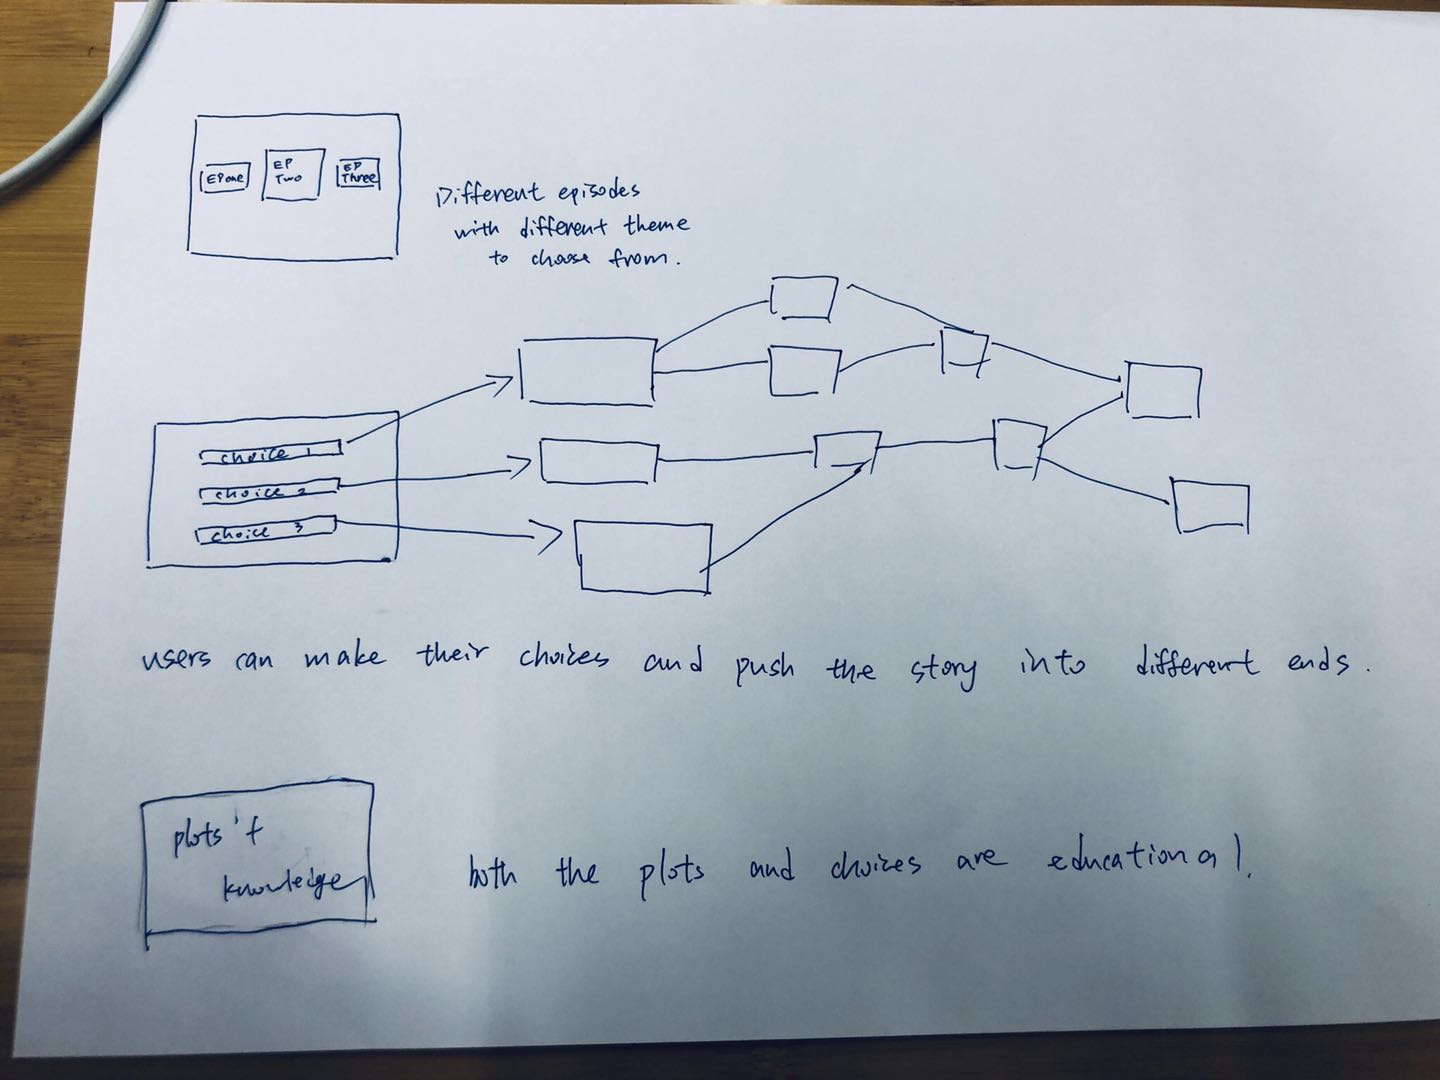 EP one
EP
Two
EP
Three
Different episodes
with different theme
to choose from.
choice 1
choice 2
choice 3
users can make their choices and push the story into different ends.
plots
knowledge
both the plots and choices are educational.